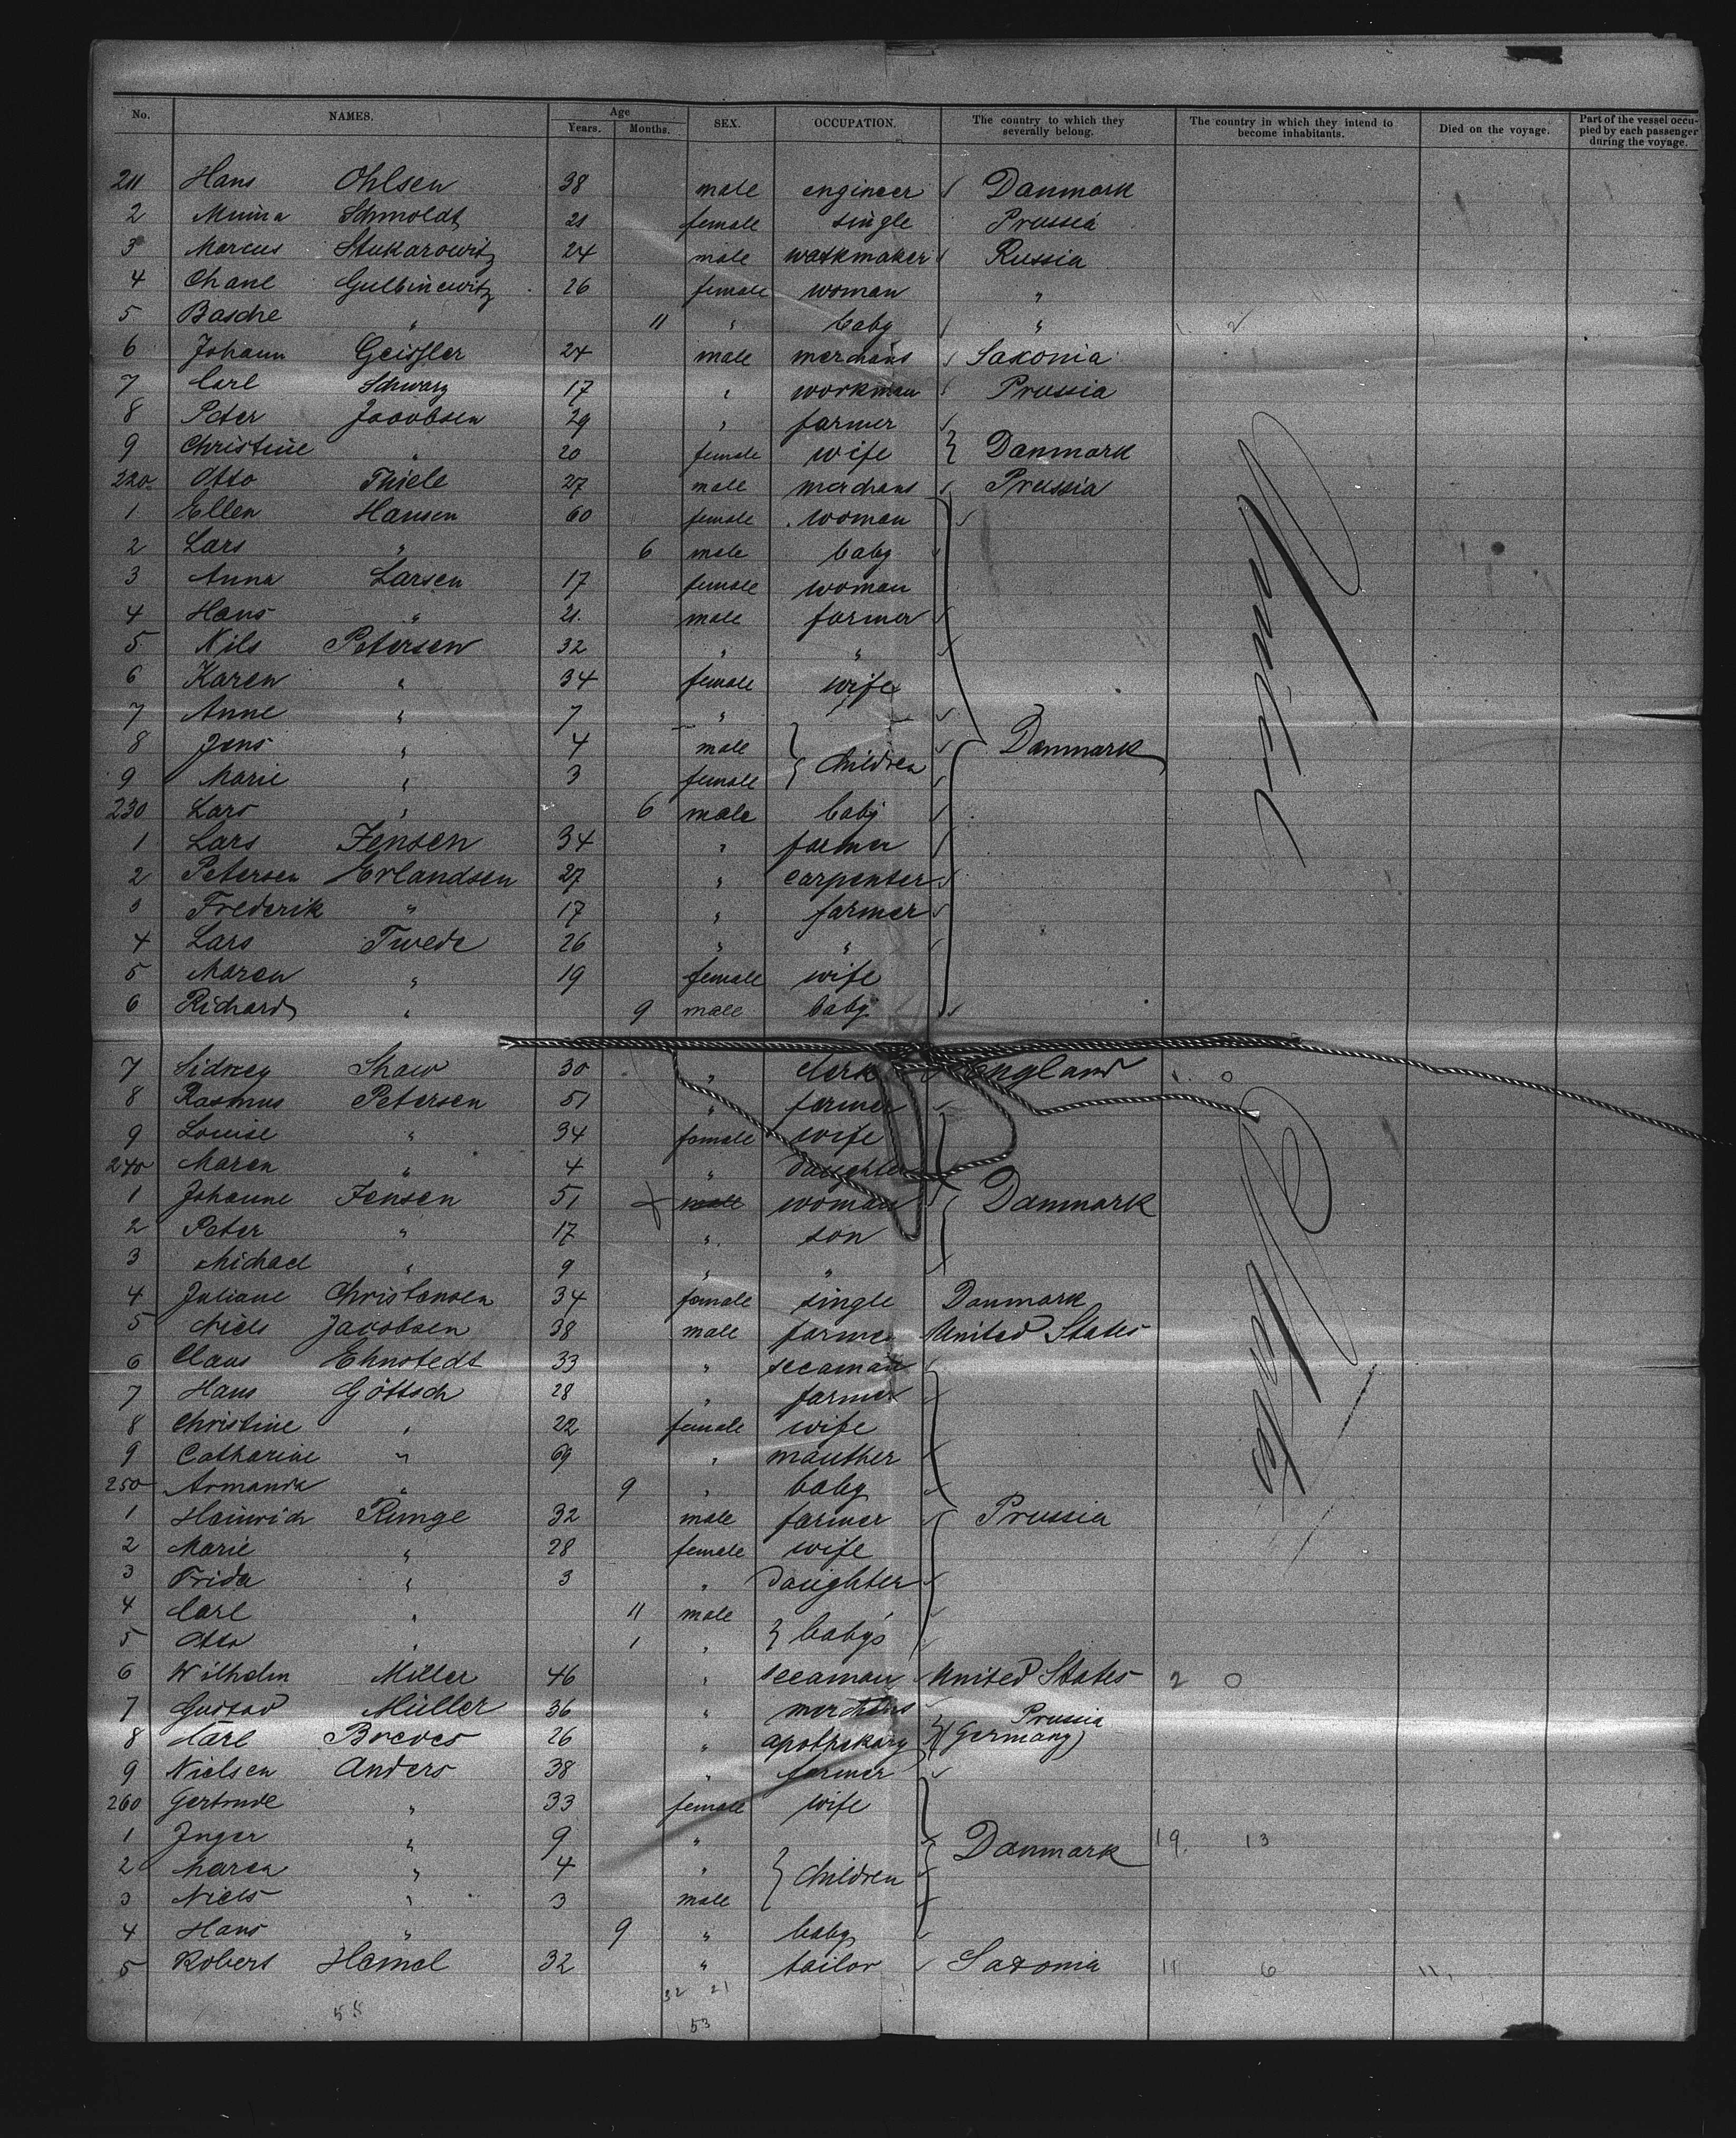 No. NAMES. Age Years. Months. SEX. OCCUPATION. The country to which they severally belong. The country in which they intend to become inhabitants. Died on the voyage. Part of the vessel occupied by each passenger during the voyage.
211 Hans Ohlsen 38 male engineer Danmark
2 Minna Schmoldt 21 female single Prussia
3 Marcus Stukarowitz 24 male watkmaker Russia
4 Chane Gulbinewitz 26 female woman "
5 Basche " 11 " baby "
6 Johann Geissler 24 male merchant Saxonia
7 Carl Schwarz 17 " workman Prussia
8 Peter Jacobsen 29 " farmer
9 Christine " 20 female wife Danmark
220 Otto Thiele 27 male merchant Prussia
1 Ellen Hansen 60 female woman
2 Lars " 6 male baby
3 Anna Larsen 17 female woman
4 Hans " 21 male farmer
5 Nils Petersen 32 " "
6 Karen " 34 female wife
7 Anne " 7 "
8 Jens " 4 male Children Danmark
9 Marie " 3 female
230 Lars " 6 male baby
1 Lars Jensen 34 " farmer
2 Petersen Erlandsen 27 " carpenter
3 Frederik " 17 " farmer
4 Lars Twede 26 " "
5 Maren " 19 female wife
6 Richard " 9 male baby
7 Sidney Shaw 30 " clerk England 1 0
8 Rasmus Petersen 51 " farmer
9 Louise " 34 female wife
240 Maren " 4 " daughter
1 Johanne Jensen 51 male woman Danmark
2 Peter " 17 " son
3 Michael " 9 " "
4 Juliane Christansen 34 female single Danmark
5 Niels Jacobsen 38 male farmer United States
6 Claus Ehnstedt 33 " seeaman
7 Hans Göttsch 28 " farmer
8 Christine " 22 female wife
9 Catharine " 69 " mauther
250 Armanda " 9 " baby
1 Heinrich Runge 32 male farmer Prussia
2 Marie " 28 female wife
3 Frida " 3 " Daughter
4 Carl " 11 male
5 Otto " 1 " babys
6 Wilhelm Miller 46 " seeaman United States 2 0
7 Gustav Müller 36 " merchant Prussia
8 Carl Breves 26 " apothekary (Germany)
9 Nielsen Anders 38 " farmer
260 Gertrude " 33 female wife
1 Inger " 9 " Danmark 19 13
2 Maren " 4 " Children
3 Niels " 3 male
4 Hans " 9 " baby
5 Robert Hamel 32 " tailor Saxonia 11 6 11
32 21
53